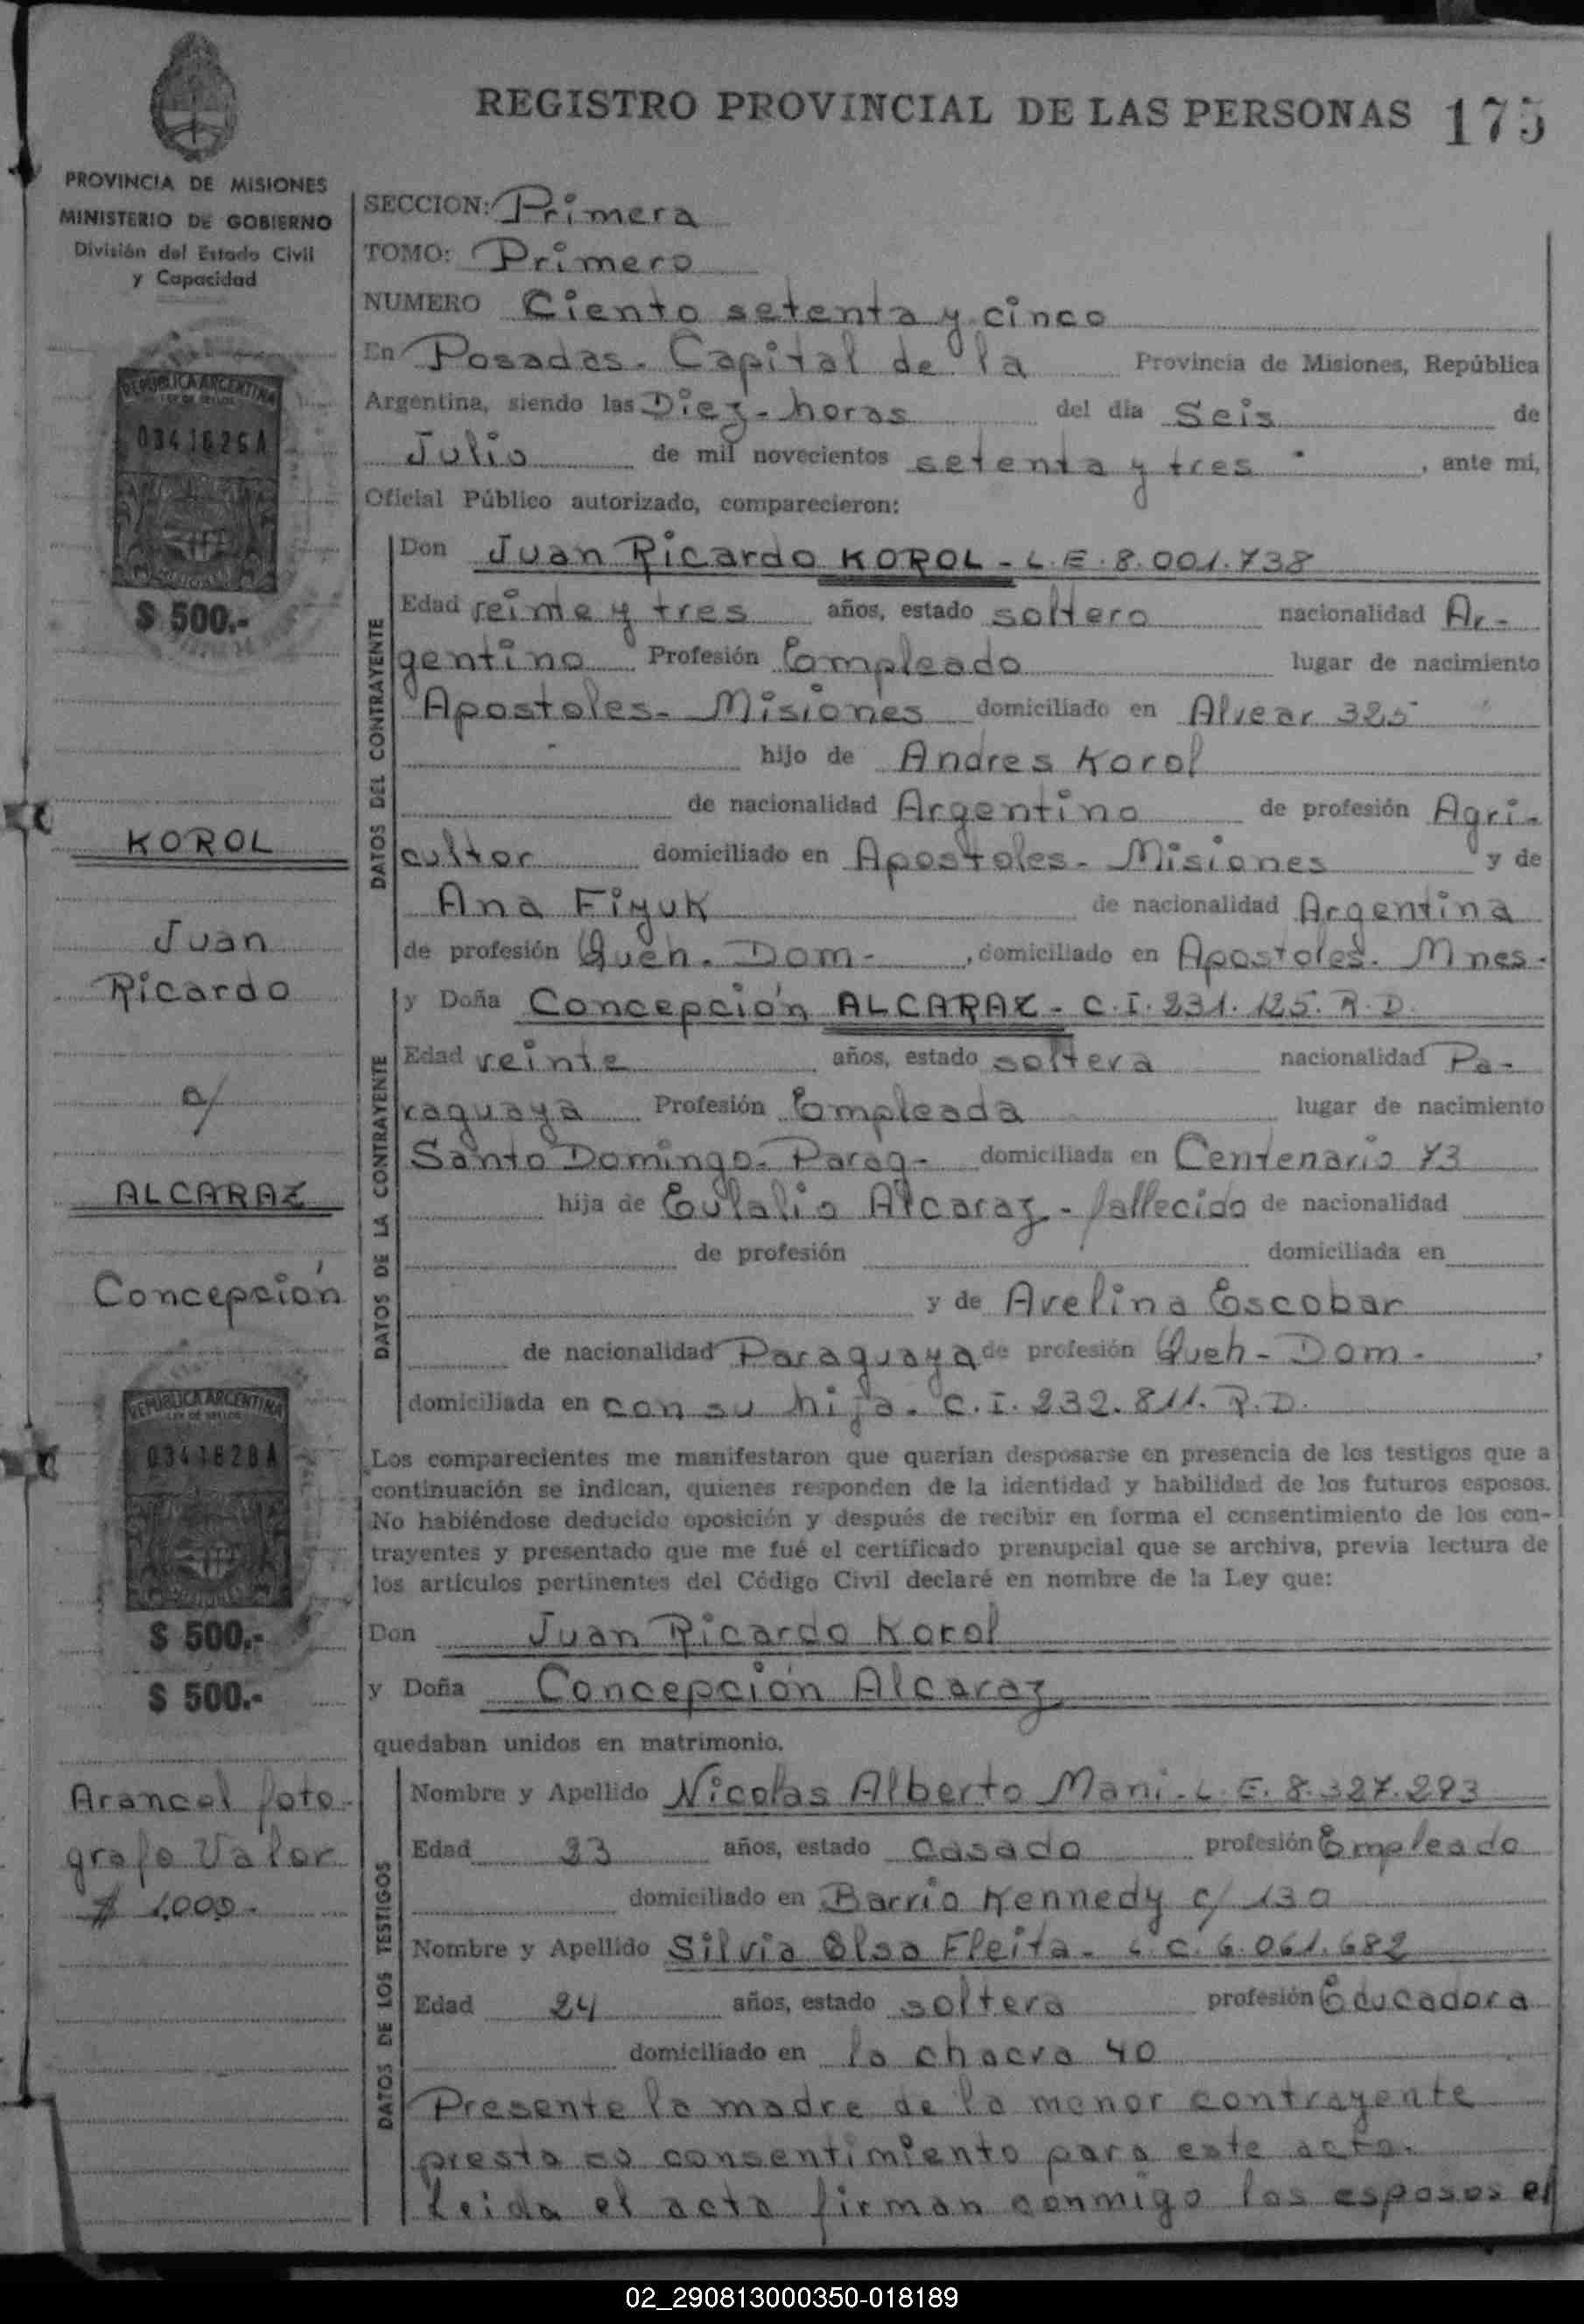 REGISTRO PROVINCIAL DE LAS PERSONAS 175
PROVINCIA DE MISIONES
MINISTERIO DE GOBIERNO
División del Estado Civil
y Capacidad
REPUBLICA ARGENTINA
LEY DE SELLOS
0341626A
$ 500.-
KOROL
Juan
Ricardo
c/
ALCARAZ
Concepción
REPUBLICA ARGENTINA
LEY DE SELLOS
0341628A
$ 500.-
$ 500.-
Arancel foto-
grafo Valor
$ 1.000.-
SECCION: Primera
TOMO: Primero
NUMERO Ciento setenta y cinco
En Posadas. Capital de la Provincia de Misiones, República
Argentina, siendo las Diez - horas del día Seis de
Julio de mil novecientos setenta y tres , ante mi,
Oficial Público autorizado, comparecieron:
DATOS DEL CONTRAYENTE
Don Juan Ricardo KOROL - L.E. 8.001.738
Edad veinte y tres años, estado soltero nacionalidad Ar-
gentino Profesión Empleado lugar de nacimiento
Apostoles - Misiones domiciliado en Alvear 325
hijo de Andres Korol
de nacionalidad Argentino de profesión Agri-
cultor domiciliado en Apostoles - Misiones y de
Ana Fiyuk de nacionalidad Argentina
de profesión Queh. Dom - , domiciliado en Apostoles. Mnes.
DATOS DE LA CONTRAYENTE
y Doña Concepción ALCARAZ - C.I. 231.125. R.D.
Edad veinte años, estado soltera nacionalidad Pa-
raguaya Profesión Empleada lugar de nacimiento
Santo Domingo - Parag - domiciliada en Centenario 73
hija de Eulalio Alcaraz - fallecido de nacionalidad
de profesión domiciliada en
y de Avelina Escobar
de nacionalidad Paraguaya de profesión Queh - Dom - ,
domiciliada en con su hija. C.I. 232.811. R.D.
Los comparecientes me manifestaron que querían desposarse en presencia de los testigos que a
continuación se indican, quienes responden de la identidad y habilidad de los futuros esposos.
No habiéndose deducido oposición y después de recibir en forma el consentimiento de los con-
trayentes y presentado que me fué el certificado prenupcial que se archiva, previa lectura de
los artículos pertinentes del Código Civil declaré en nombre de la Ley que:
Don Juan Ricardo Korol
y Doña Concepción Alcaraz
quedaban unidos en matrimonio.
DATOS DE LOS TESTIGOS
Nombre y Apellido Nicolas Alberto Mani - L.E. 8.327.293
Edad 23 años, estado casado profesión Empleado
domiciliado en Barrio Kennedy c/ 130
Nombre y Apellido Silvia Olga Fleita - L.C. 6.061.682
Edad 24 años, estado soltera profesión Educadora
domiciliado en la chacra 40
Presente la madre de la menor contrayente
presta su consentimiento para este acto.
Leida el acta firman conmigo los esposos el
02_290813000350-018189